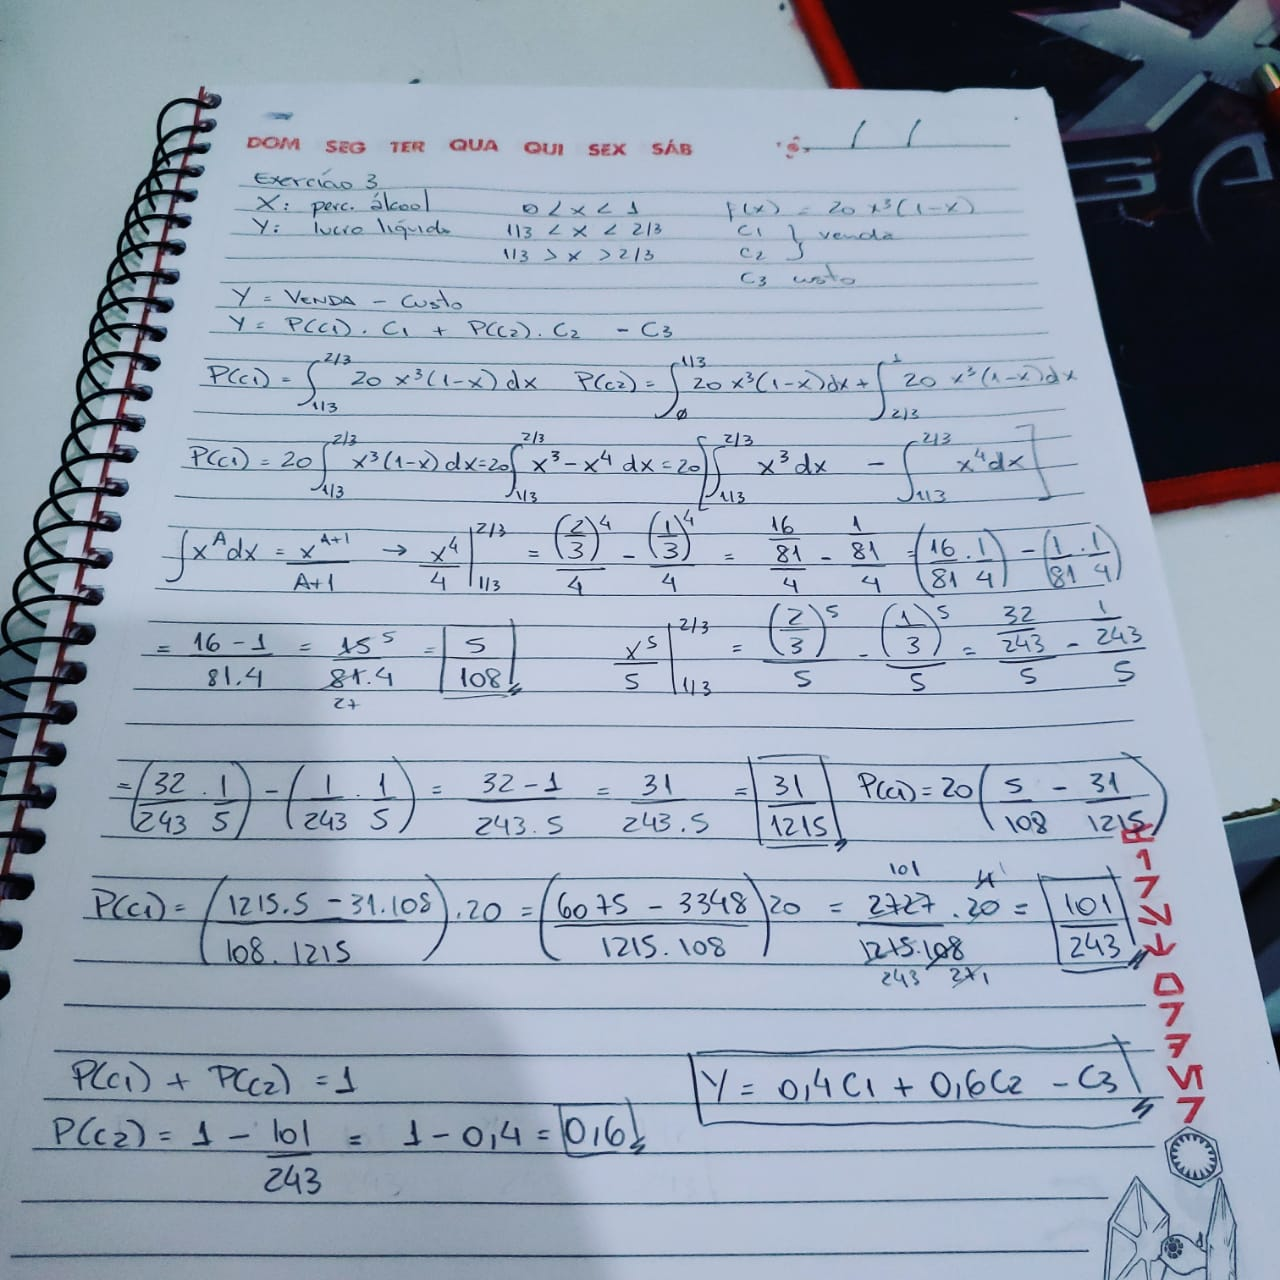 DOM SEG TER QUA QUI SEX SÁB / /
Exercício 3
X: perc. álcool 0 < x < 1 f(x) = 20 x³(1-x)
Y: lucro líquido 1/3 < x < 2/3 C1 } venda
1/3 > x > 2/3 C2
C3 custo
Y = VENDA - Custo
Y = P(C1) . C1 + P(C2) . C2 - C3
P(C1) = ∫_{1/3}^{2/3} 20 x³(1-x) dx P(C2) = ∫_0^{1/3} 20 x³(1-x)dx + ∫_{2/3}^1 20 x³(1-x)dx
P(C1) = 20 ∫_{1/3}^{2/3} x³(1-x) dx = 20 ∫_{1/3}^{2/3} x³ - x⁴ dx = 20 [∫_{1/3}^{2/3} x³ dx - ∫_{1/3}^{2/3} x⁴ dx]
∫ x^A dx = x^{A+1}/A+1 → x⁴/4 |_{1/3}^{2/3} = (2/3)⁴/4 - (1/3)⁴/4 = 16/81/4 - 1/81/4 = (16/81 . 1/4) - (1/81 . 1/4)
= 16 - 1/81.4 = 15 5/81.4 27 = 5/108 x⁵/5 |_{1/3}^{2/3} = (2/3)⁵/5 - (1/3)⁵/5 = 32/243/5 - 1/243/5
= (32/243 . 1/5) - (1/243 . 1/5) = 32 - 1/243.5 = 31/243.5 = 31/1215 P(C1) = 20 (5/108 - 31/1215)
P(C1) = (1215.5 - 31.108/108.1215) . 20 = (6075 - 3348/1215.108) 20 = 101 2727/1215.108 . 20 4 1 243 27 1 = 101/243
P(C1) + P(C2) = 1
Y = 0,4C1 + 0,6C2 - C3
P(C2) = 1 - 101/243 = 1 - 0,4 = 0,6